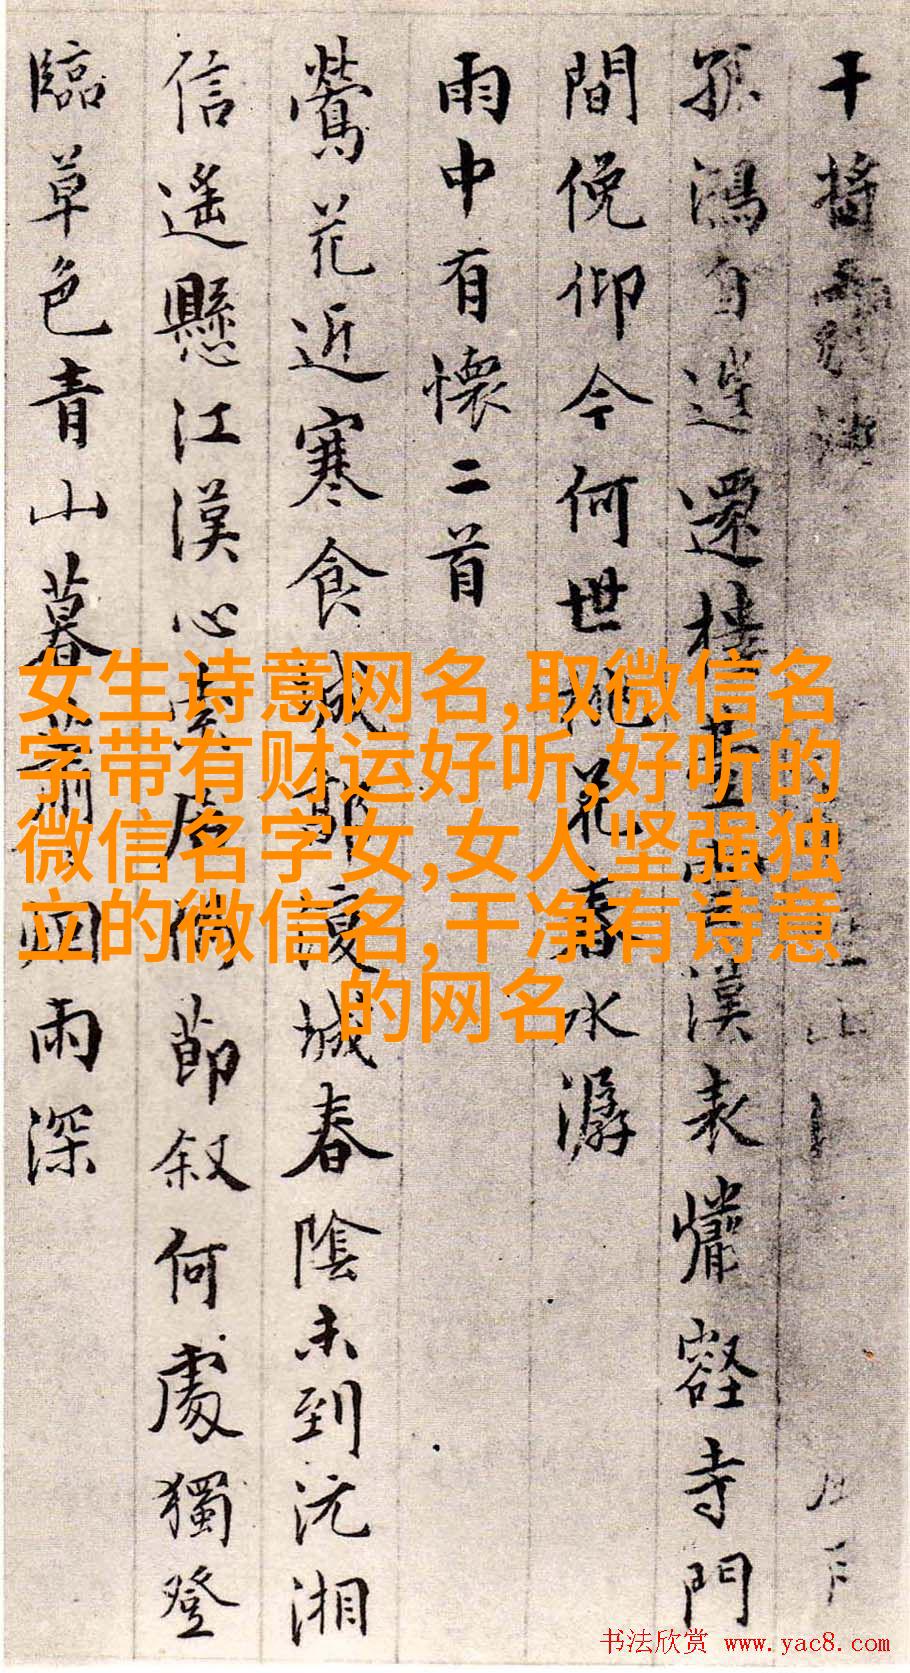 干將
孤鴻自 還樓 漢表 壑寺門
間俛仰今何世桃花春水潺
雨中有懷二首
鶯花近寒食 復城春陰未到沅湘
信遙懸江漢心 節叙何處獨登
臨草色青山暮 雨深
女生诗意网名,取微信名
字带有财运好听,好听的
微信名字女,女人坚强独
立的微信名,干净有诗意
的网名
书法欣赏 www.yac8.com